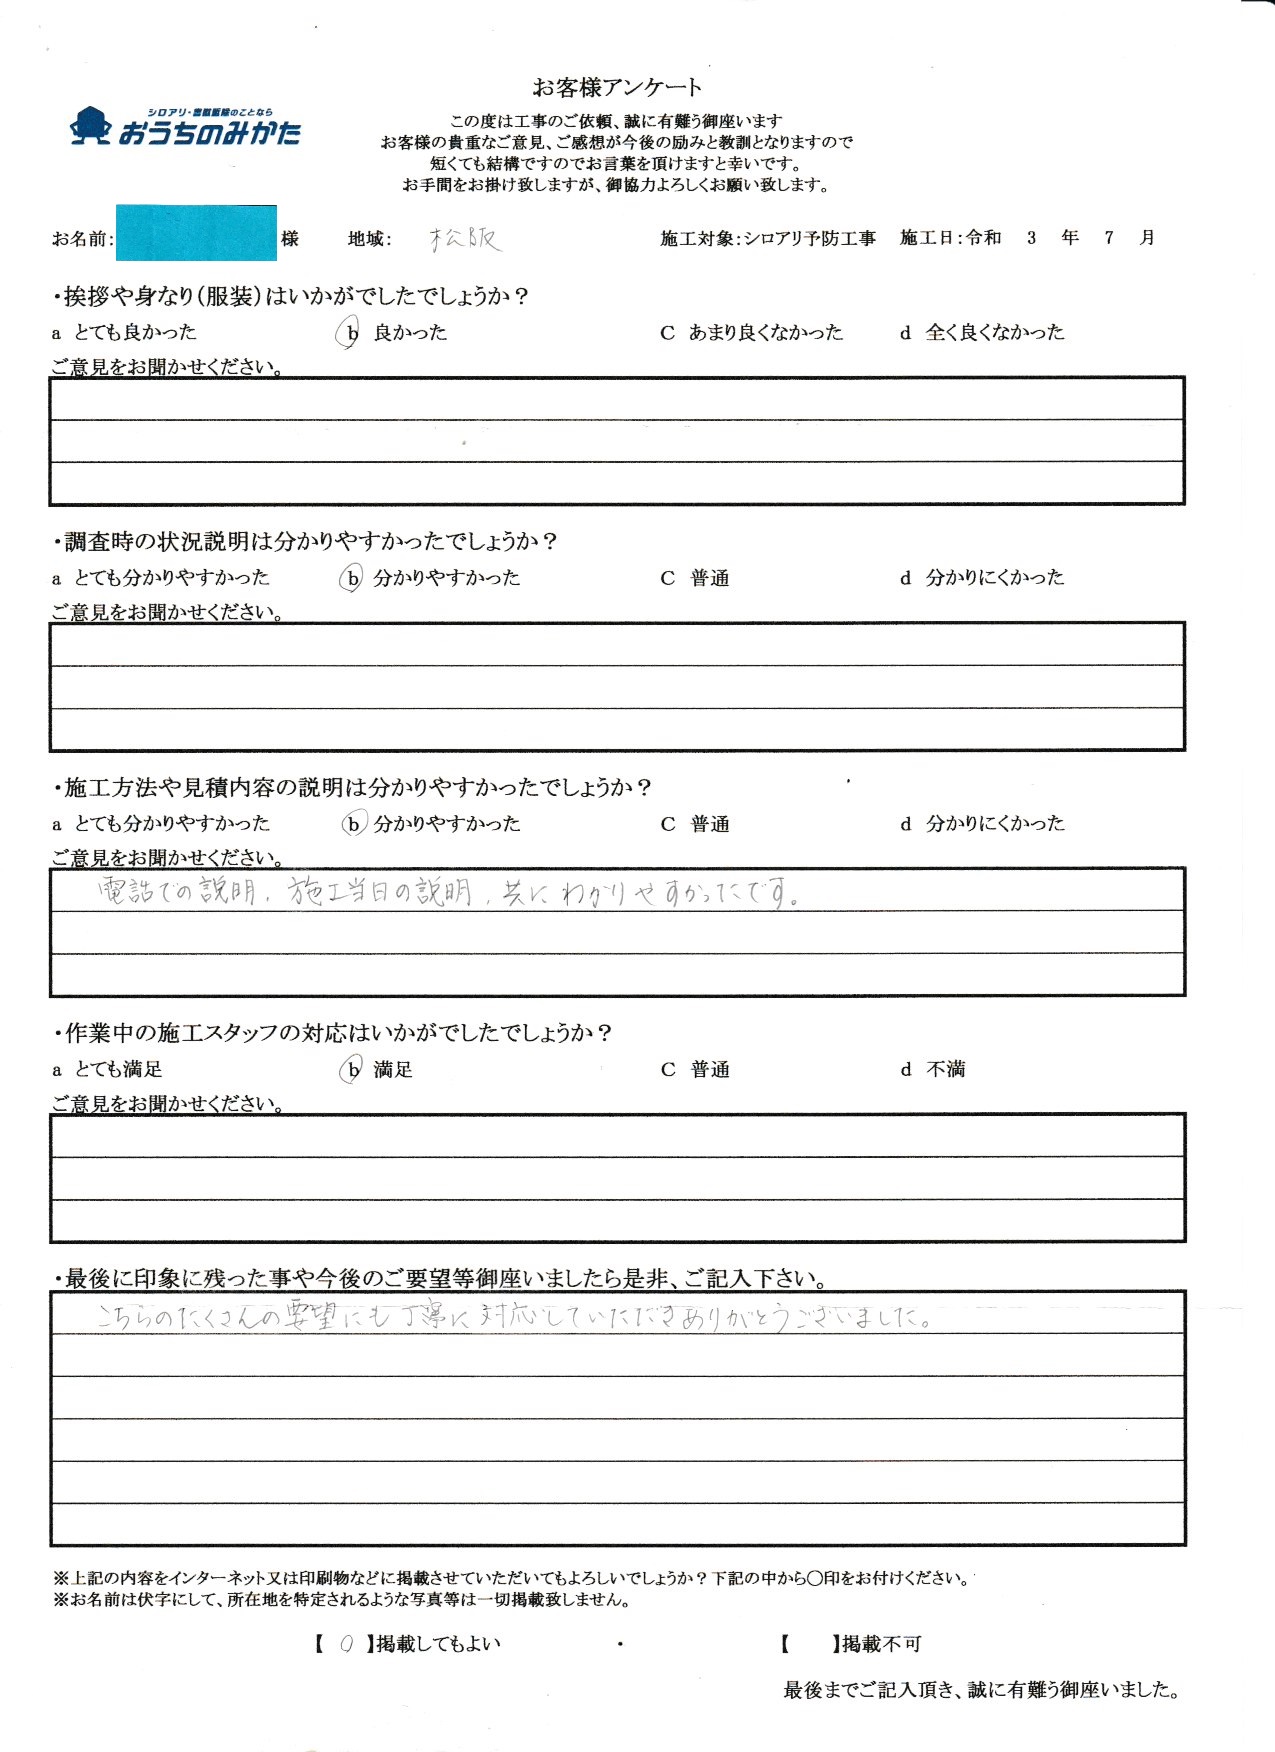 お客様アンケート
シロアリ・害獣駆除のことなら
おうちのみかた
この度は工事のご依頼、誠に有難う御座います
お客様の貴重なご意見、ご感想が今後の励みと教訓となりますので
短くても結構ですのでお言葉を頂けますと幸いです。
お手間をお掛け致しますが、御協力よろしくお願い致します。
お名前： 様 地域： 松阪 施工対象：シロアリ予防工事 施工日：令和 3 年 7 月
・挨拶や身なり（服装）はいかがでしたでしょうか？
a とても良かった b 良かった C あまり良くなかった d 全く良くなかった
ご意見をお聞かせください。
・調査時の状況説明は分かりやすかったでしょうか？
a とても分かりやすかった b 分かりやすかった C 普通 d 分かりにくかった
ご意見をお聞かせください。
・施工方法や見積内容の説明は分かりやすかったでしょうか？
a とても分かりやすかった b 分かりやすかった C 普通 d 分かりにくかった
ご意見をお聞かせください。
電話での説明、施工当日の説明、共にわかりやすかったです。
・作業中の施工スタッフの対応はいかがでしたでしょうか？
a とても満足 b 満足 C 普通 d 不満
ご意見をお聞かせください。
・最後に印象に残った事や今後のご要望等御座いましたら是非、ご記入下さい。
こちらのたくさんの要望にも丁寧に対応していただきありがとうございました。
※上記の内容をインターネット又は印刷物などに掲載させていただいてもよろしいでしょうか？下記の中から〇印をお付けください。
※お名前は伏字にして、所在地を特定されるような写真等は一切掲載致しません。
【 〇 】掲載してもよい ・ 【 】掲載不可
最後までご記入頂き、誠に有難う御座いました。